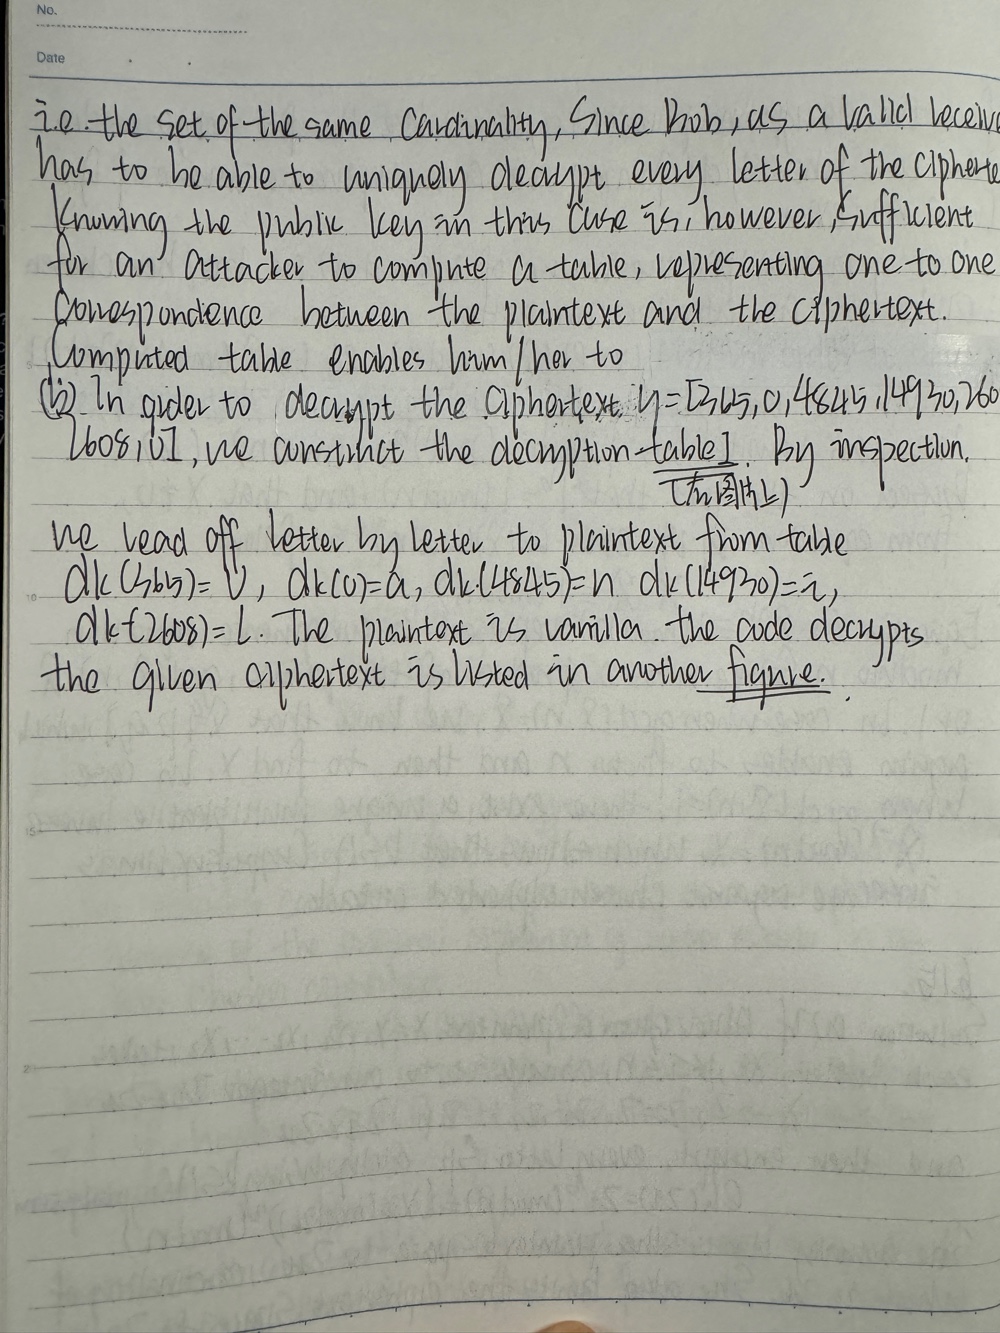 No.
Date
i.e. the set of the same Cardinality, Since Bob, as a valid receiv
has to be able to uniquely decrypt every letter of the cipherte
Knowing the public key in this case is, however, sufficient
for an attacker to compute a table, representing one to one
Correspondence between the plaintext and the ciphertext.
Computed table enables him/her to
(b) In order to decrypt the ciphertext y=[365,0,4845,14930,260
2608,0], we construct the decryption table1. By inspection,
(在图片上)
we read off letter by letter to plaintext from table
10
dk(365)=V, dk(0)=a, dk(4845)=n dk(14930)=i,
dk(2608)=L. The plaintext is vanilla. the code decrypts
the given ciphertext is listed in another figure.
15